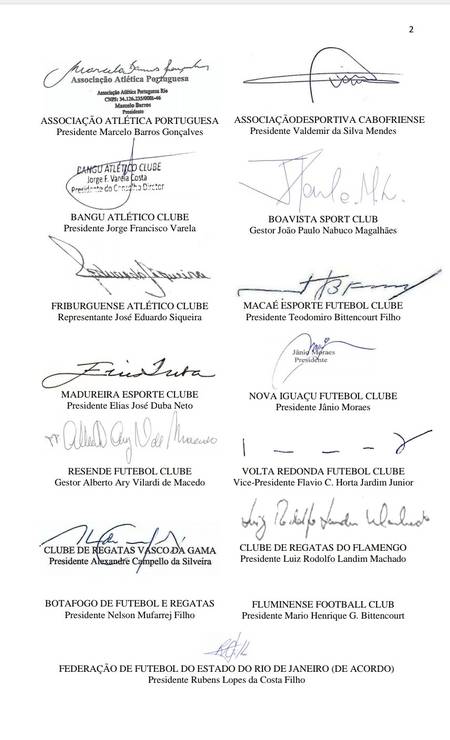 2
Marcelo Barros Gonçalves
Associação Atlética Portuguesa
Associação Atlética Portuguesa Rio
CNPJ: 34.126.235/0001-46
Marcelo Barros
Presidente
ASSOCIAÇÃO ATLÉTICA PORTUGUESA
Presidente Marcelo Barros Gonçalves
ASSOCIAÇÃODESPORTIVA CABOFRIENSE
Presidente Valdemir da Silva Mendes
BANGU ATLÉTICO CLUBE
Jorge F. Varela Costa
Presidente do Conselho Diretor
BANGU ATLÉTICO CLUBE
Presidente Jorge Francisco Varela
BOAVISTA SPORT CLUB
Gestor João Paulo Nabuco Magalhães
FRIBURGUENSE ATLÉTICO CLUBE
Representante José Eduardo Siqueira
MACAÉ ESPORTE FUTEBOL CLUBE
Presidente Teodomiro Bittencourt Filho
Elias Duba
MADUREIRA ESPORTE CLUBE
Presidente Elias José Duba Neto
Jânio Moraes
Presidente
NOVA IGUAÇU FUTEBOL CLUBE
Presidente Jânio Moraes
RESENDE FUTEBOL CLUBE
Gestor Alberto Ary Vilardi de Macedo
VOLTA REDONDA FUTEBOL CLUBE
Vice-Presidente Flavio C. Horta Jardim Junior
CLUBE DE REGATAS VASCO DA GAMA
Presidente Alexandre Campello da Silveira
Luiz Rodolfo Landim Machado
CLUBE DE REGATAS DO FLAMENGO
Presidente Luiz Rodolfo Landim Machado
BOTAFOGO DE FUTEBOL E REGATAS
Presidente Nelson Mufarrej Filho
FLUMINENSE FOOTBALL CLUB
Presidente Mario Henrique G. Bittencourt
FEDERAÇÃO DE FUTEBOL DO ESTADO DO RIO DE JANEIRO (DE ACORDO)
Presidente Rubens Lopes da Costa Filho